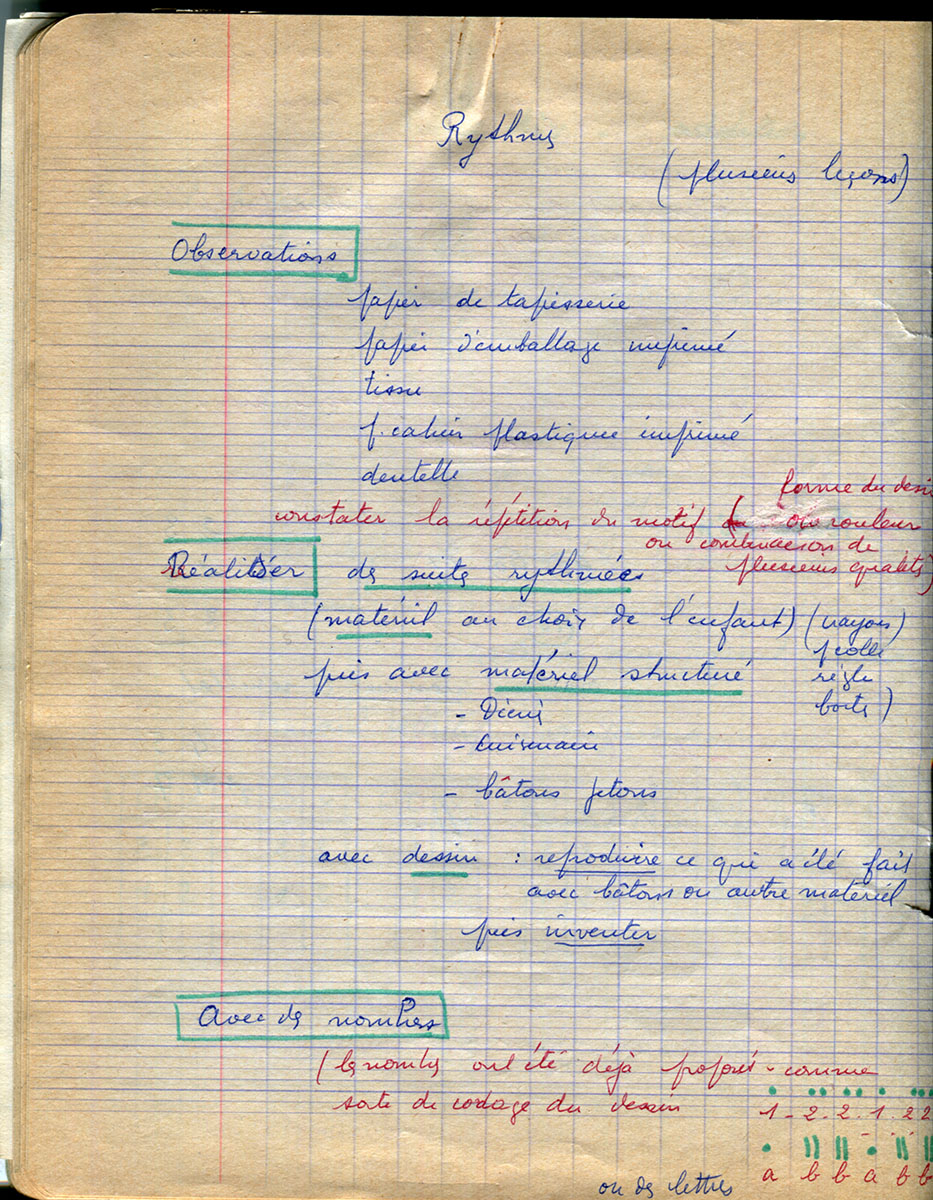 Rythmes
(plusieurs leçons)
Observations
papier de tapisserie
papier d'emballage imprimé
tissu
p. cahier plastique imprimé
dentelle
forme du dessin
constater la répétition du motif ou couleur
ou combinaison de
plusieurs qualités)
Réaliser des suites rythmées
(matériel au choix de l'enfant) (crayons
p colle
puis avec matériel structuré règle
boîtes)
- Dienes
- Cuisenaire
- bâtons jetons
avec dessin : reproduire ce qui a été fait
avec bâtons ou autre matériel
puis inventer
Avec des nombres
(les nombres ont été déjà proposés comme
sorte de codage du dessin
1 - 2 - 2 - 1 - 2 2
a b b a b b
ou des lettres